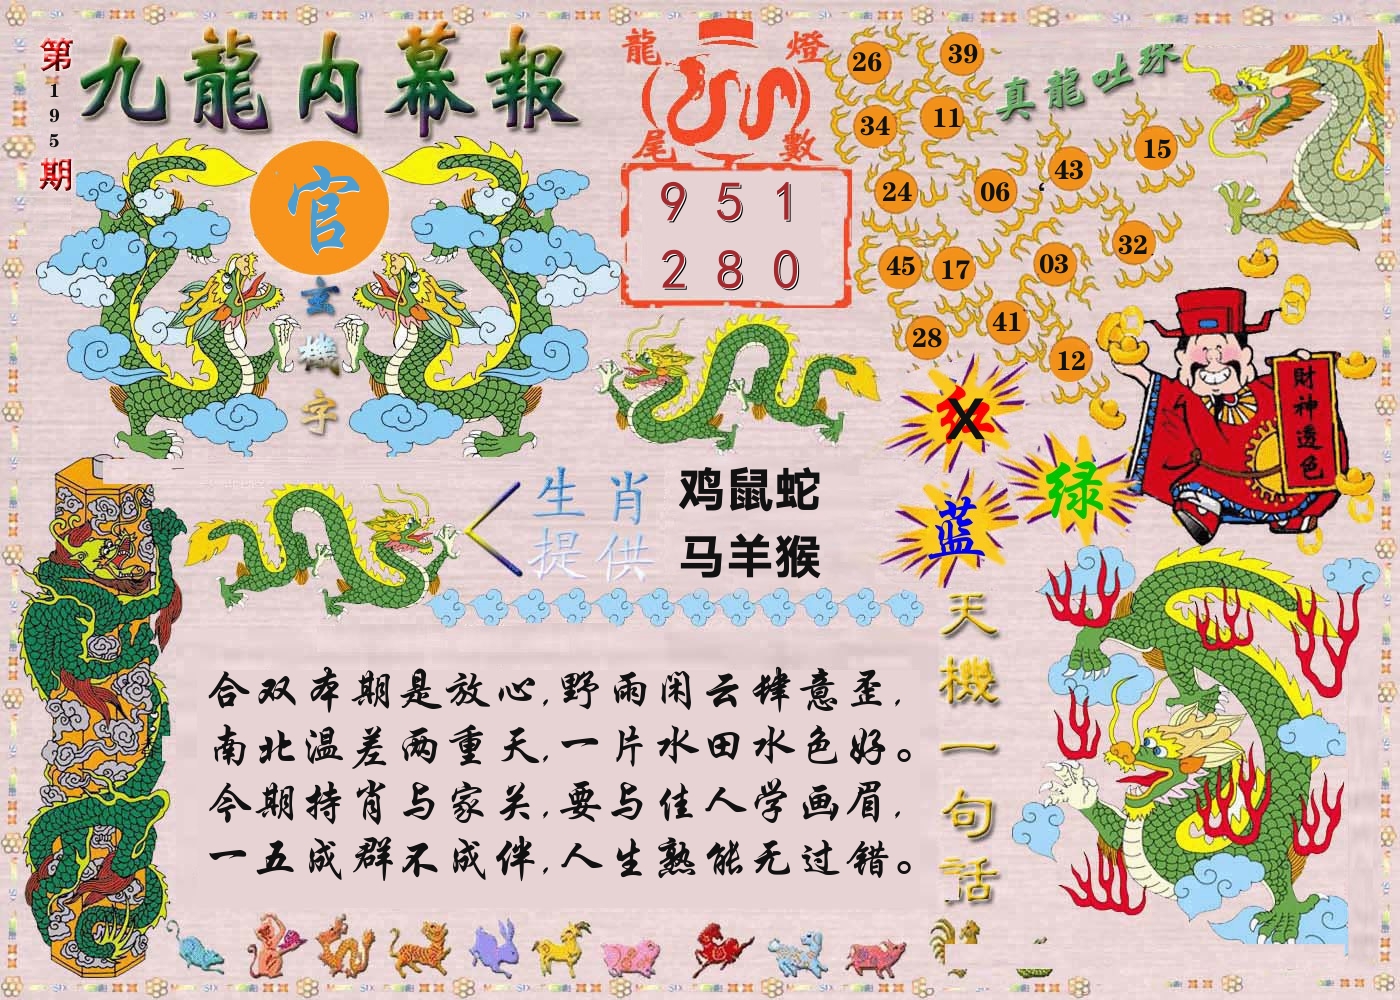 第195期
九龍内幕報
官
玄機字
龍燈尾數
9 5 1
2 8 0
真龍吐珠
26
39
34
11
15
43
24
06
32
45
17
03
28
41
12
红 X
绿
蓝
財神透色
生肖
提供
鸡鼠蛇
马羊猴
天機一句話
合双本期是放心,野雨闲云肆意歪,
南北温差两重天,一片水田水色好。
今期特肖与家关,要与佳人学画眉,
一五成群不成伴,人生熟能无过错。